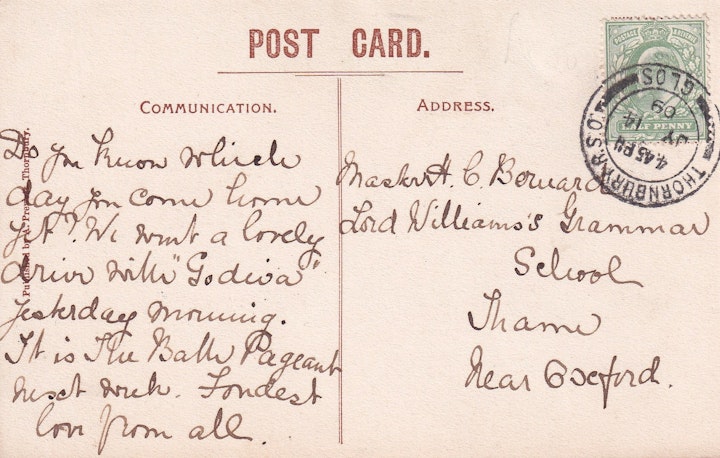 POST CARD.
COMMUNICATION.
ADDRESS.
Do you know which
day you come home
yet? We went a lovely
drive with "Godiva"
yesterday morning.
It is The Bath Pageant
next week. Fondest
love from all.
Master H. C. Bernard
Lord Williams's Grammar
School
Thame
Near Oxford.
Published by Thornbury.
POSTAGE REVENUE
HALF PENNY
THORNBURY R.S.O.
GLOS
4.45 PM
JY 14
09